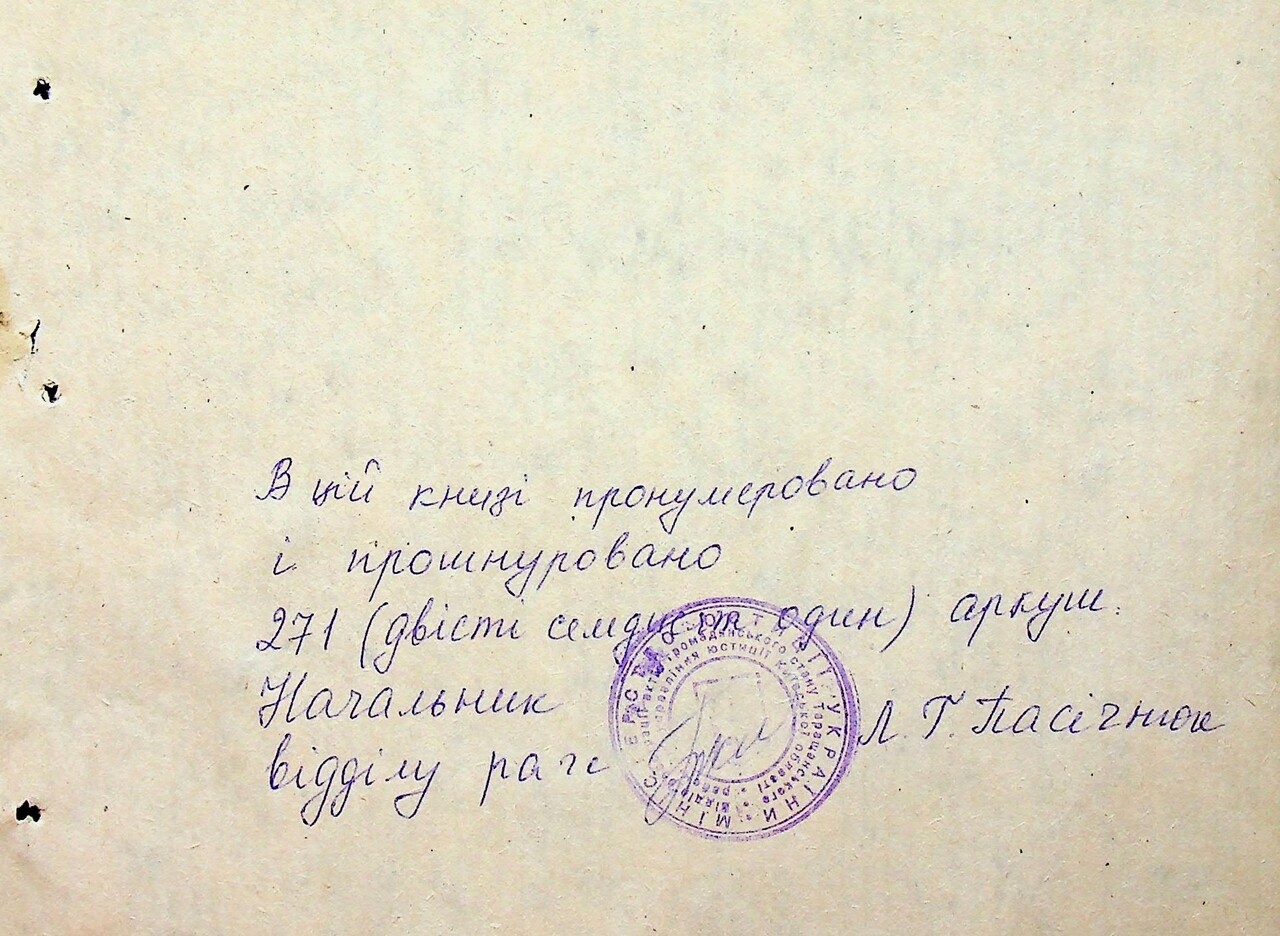 В цій книзі пронумеровано
і прошнуровано
271 (двісті семдесят один) аркуш.
Начальник
відділу рагс
Л. Г. Пасічнюк
МІНІСТЕРСТВО ЮСТИЦІЇ УКРАЇНИ
громадянського стану Таращанського
управління юстиції Київської області